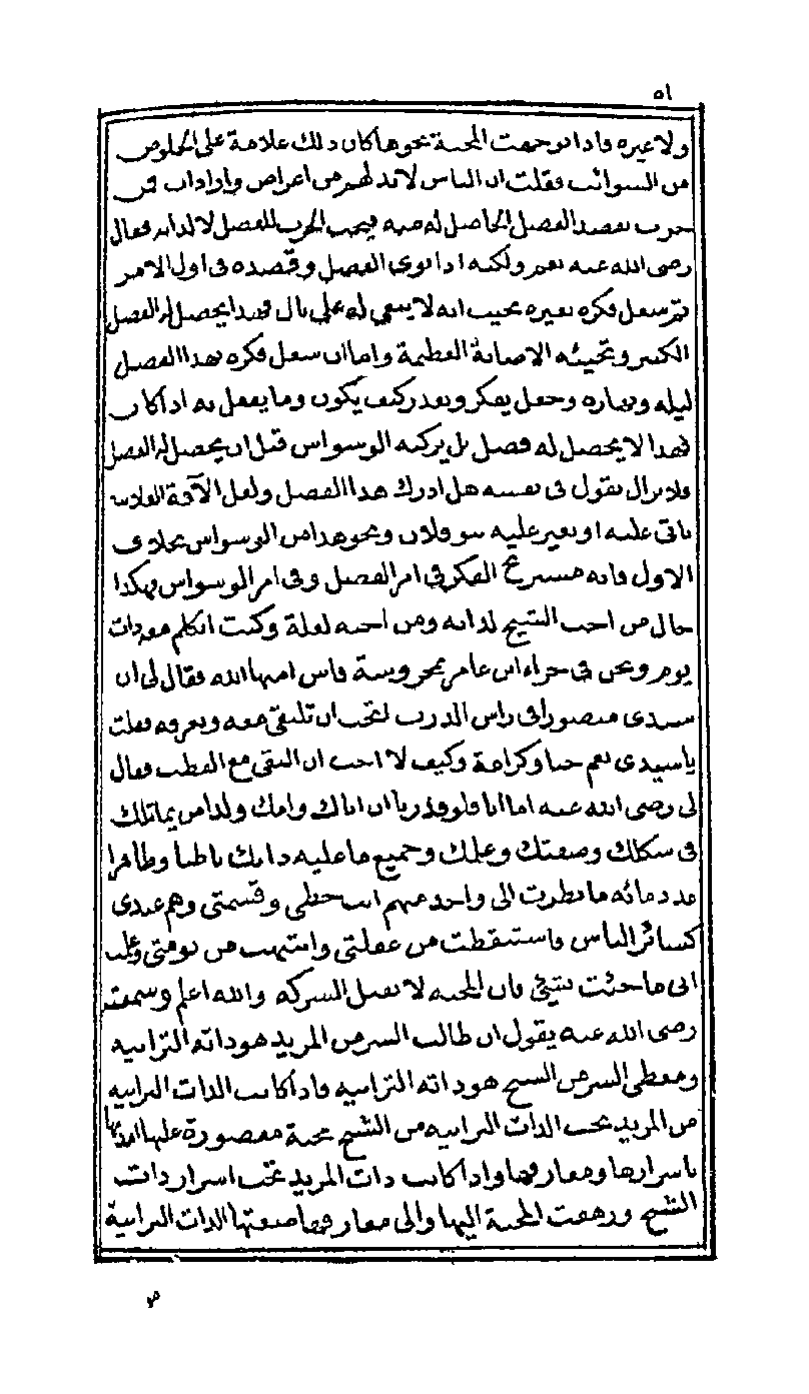 ٥١
ولا غيره فاذا توجهت المحبة نحوها كان ذلك علامة على الخلوص
من الشوائب فقلت ان الناس لابد لهم من اعراض وارادات فمن
حرث بقصد الفضل الحاصل له منه فيحب الحرث للفضل لا لذاته فقال
رضى الله عنه نعم ولكنه اذا نوى الفضل وقصده فى اول الامر
ثم شغل فكره بغيره بحيث انه لا يبقى له على بال فهذا يحصل له الفضل
الكثير وتجيئه الاصابة العظيمة واما ان شغل فكره بهذا الفضل
ليله ونهاره وجعل يفكر ويقدر كيف يكون وما يفعل به اذا كان
فهذا لا يحصل له فضل بل يركبه الوسواس قبل ان يحصل له الفضل
فلا يزال يقول فى نفسه هل ادرك هذا الفضل ولعل الآفة الفلانية
تاتى عليه او يغير عليه بنو فلان ونحو هذا من الوسواس بخلاف
الاول فانه مستريح الفكر فى امر الفضل وفى امر الوسواس فهكذا
حال من احب الشيخ لذاته ومن احبه لعلة وكنت اتكلم معه ذات
يوم ونحن فى جزاء ابن عامر بمحروسة فاس امنها الله فقال لى ان
سيدى منصورا فى راس الدرب اتحب ان تلتقى معه وتعرفه فقلت
ياسيدى نعم حبا وكرامة وكيف لا احب ان التقى مع القطب فقال
لى رضى الله عنه اما انا فلو قدرنا ان اباك وامك ولدا من يماثلك
فى شكلك وصفتك وعلمك وجميع ما عليه ذاتك باطنا وظاهرا
عدد مائه ما نظرت الى واحد منهم انت حظى وقسمتى وهم عندى
كسائر الناس فاستيقظت من غفلتى وانتبهت من نومتى وعلمت
انى ما جئت بشئ فان المحبه لا تقبل الشركه والله اعلم وسمعته
رضى الله عنه يقول ان طالب السر من المريد هو ذاته الترابيه
ومعطى السر من الشيخ هو ذاته الترابيه فاذا كانت الذات الترابيه
من المريد تحب الذات الترابيه من الشيخ محبة مقصورة عليها امدتها
باسرارها ومعارفها واذا كانت ذات المريد تحب اسرار ذات
الشيخ ورهفت المحبة اليها والى معارفها منعتها الذات الترابية